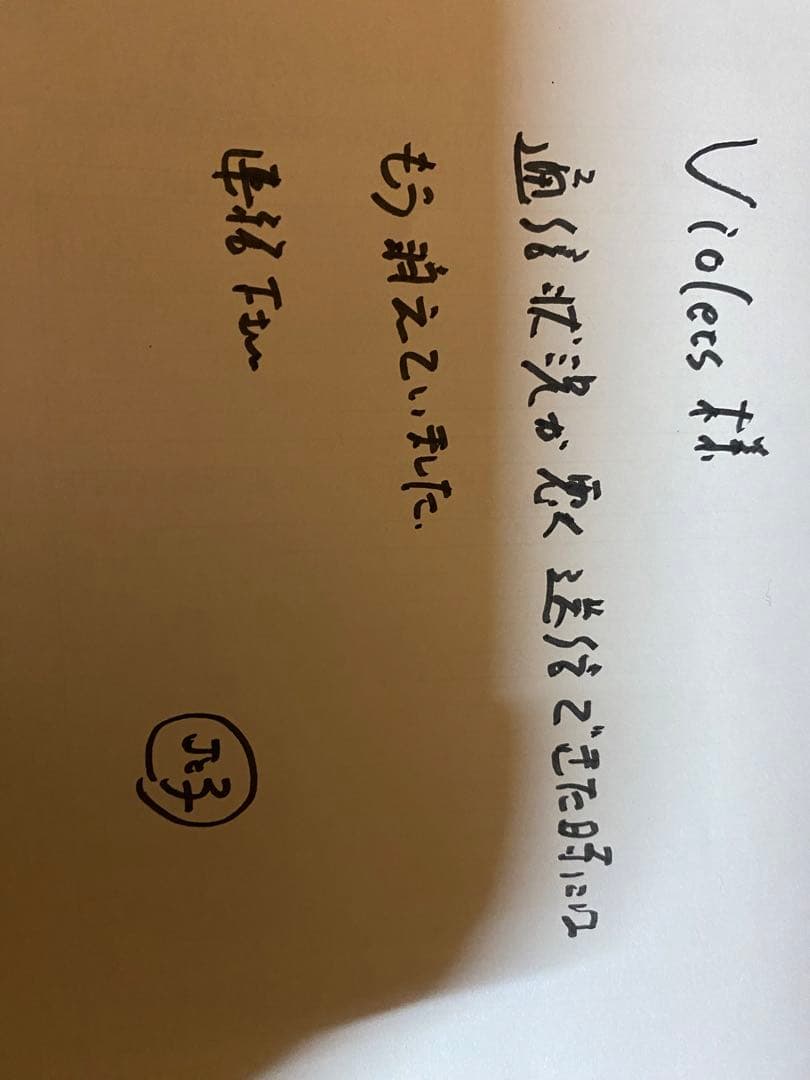 Violets 様
通信状況が悪く送信できた時には
もう消えていました.
連絡下さい